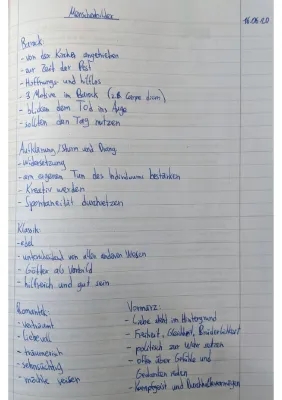 Menschenbilder
16.06.20
Barock:
- von der Kirche angetrieben
- zur Zeit der Pest
- Hoffnungs- und hilflos
- 3 Motive im Barock (z.B. Carpe diem)
- blicken dem Tod ins Auge
- sollten den Tag nutzen
Aufklärung / Sturm und Drang
- Widersetzung
- am eigenen Tun des Individuums bestärken
- Kreativ werden
- Spontaneität durchsetzen
Klassik:
- edel
- unterscheidend von allen anderen Wesen
- Götter als Vorbild
- hilfreich und gut sein
Romantik:
- verträumt
- liebevoll
- träumerisch
- sehnsüchtig
- möchte
Vormärz:
- Liebe steht im Hintergrund
- Freiheit, Gleichheit, Brüderlichkeit
- politisch zur Wehr setzen
- offen über Gefühle und
Gedanken reden
- Kampfgeist und Durchhaltevermögen